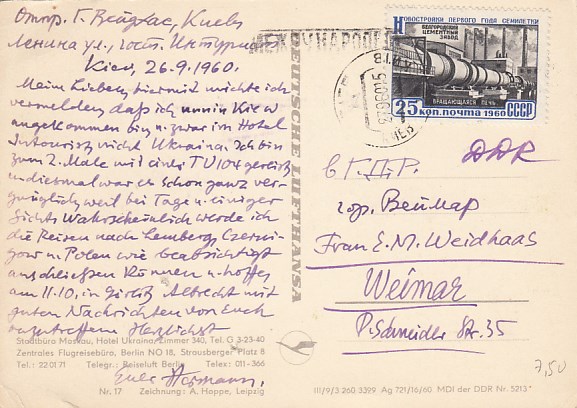 Отпр. Г. Вейдгас, Киев
Ленина ул., гост. Интурист
Kiew, 26.9.1960.
Meine Lieben, hiermit möchte ich
vermelden daß ich nun in Kiew
angekommen bin u. zwar im Hotel
Intourist nicht Ukraina. Ich bin
zum 2. Male mit eine TU 104 gereist
u. diesmal war es schon ganz ver-
gnüglich weil bei Tage u. einiger
Sicht. Wahrscheinlich werde ich
die Reisen nach Lemberg, Czerni-
gow u. Polen wie beabsichtigt
anschließen können u. hoffe
am 11.10. in Görlitz Albrecht mit
guten Nachrichten von Euch
anzutreffen. Herzlichst
Euer Hermann.
DEUTSCHE LUFTHANSA
Stadtbüro Moskau, Hotel Ukraina, Zimmer 340, Tel. G 3-23-40
Zentrales Flugreisebüro, Berlin NO 18, Strausberger Platz 8
Tel.: 22 01 71 Telegr.: Reiseluft Berlin Telex: 011-366
Nr. 17 Zeichnung: A. Hoppe, Leipzig
МЕЖДУНАРОД
КИЕВ
Новостройки первого года семилетки
БЕЛГОРОДСКИЙ
ЦЕМЕНТНЫЙ
ЗАВОД
ВРАЩАЮЩАЯСЯ ПЕЧЬ
25 коп. почта 1960 СССР
в Г.Д.Р. DDR
гор. Веймар
Frau E. M. Weidhaas
Weimar
P. Schneider Str. 35
7,50
III/9/3 260 3399 Ag 721/16/60 MDI der DDR Nr. 5213*